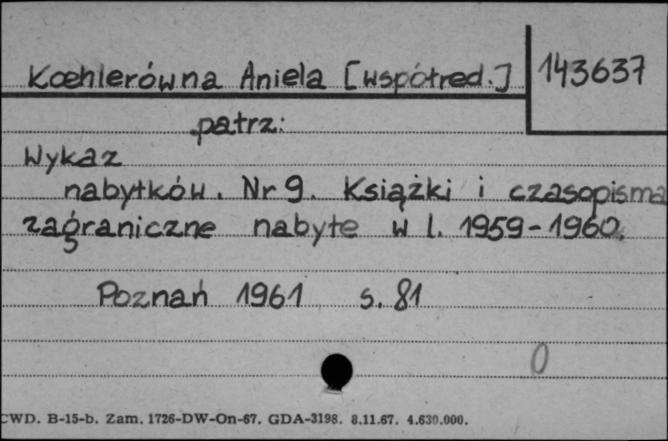 Koehlerówna Aniela [współred.] 143637
patrz:
Wykaz
nabytków. Nr 9. Książki i czasopisma
zagraniczne nabyte w l. 1959-1960.
Poznań 1961 s. 81
0
CWD. B-15-b. Zam. 1726-DW-On-67. GDA-3198. 8.11.67. 4.630.000.